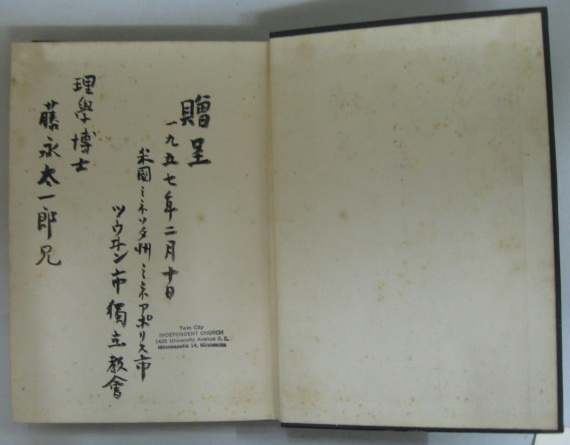 贈呈
一九五七年二月十日
米國ミネソタ州ミネアポリス市
ツウヰン市獨立教會
理學博士
藤永太一郎兄
Twin City
INDEPENDENT CHURCH
1425 University Avenue S. E.
Minneapolis 14, Minnesota